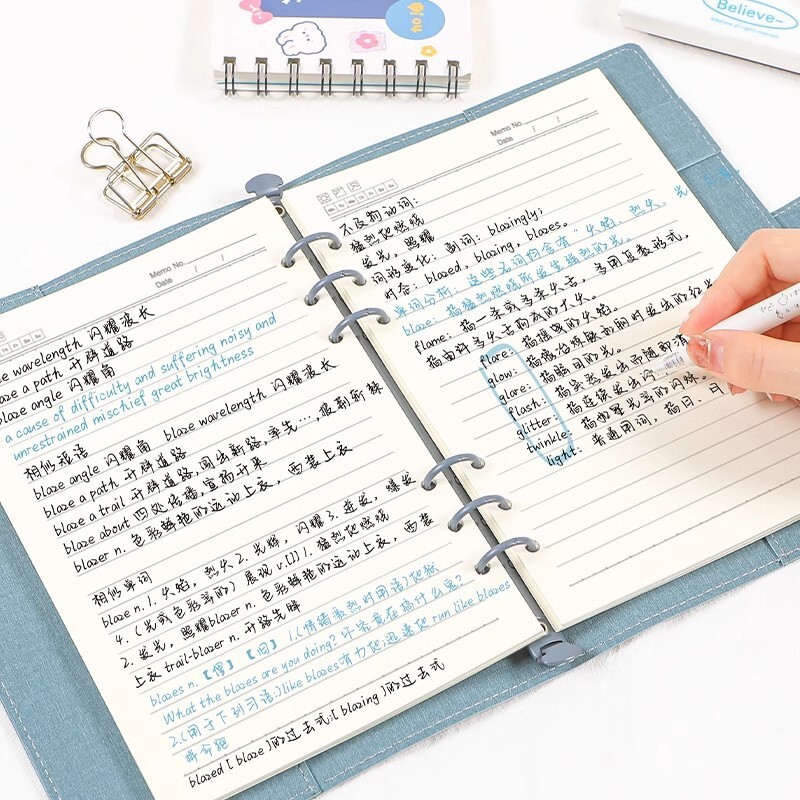 Believe-
Memo No.
Date / /
ze wavelength 闪耀波长
aze a path 开辟道路
blaze angle 闪耀角
a cause of difficulty and suffering noisy and
unrestrained mischief great brightness
相似短语
blaze angle 闪耀角 blaze wavelength 闪耀波长
blaze a path 开辟道路
blaze a trail 开辟道路,闯出新路,率先…,披荆斩棘
blaze about 四处传播,宣扬开来
blazer n. 色彩鲜艳的运动上衣, 西装上衣
相似单词
blaze n. 1. 火焰, 烈火 2. 光辉, 闪耀 3. 迸发, 爆发
4. (光或色彩等的) 展现 v.[I] 1. 猛烈地燃烧
2. 发光, 照耀 blazer n. 色彩鲜艳的运动上衣, 西装
上衣 trail-blazer n. 开路先锋
blazes n. 【俚】【旧】 1.(情绪激烈时用语)地狱
What the blazes are you doing? 你究竟在搞什么鬼?
2.(用于下列习语:)like blazes有力地;迅速地 run like blazes
拼命跑
blazed [ blaze ]的过去式;[ blazing ]的过去式
Memo No.
Date / /
不及物动词:
猛烈地燃烧
发光, 照耀
词形变化: 副词: blazingly;
时态: blazed, blazing, blazes.
单词分析: 这些名词均含有"火焰、烈火、光
blaze: 指猛烈燃烧所发生强烈的光。
flame: 指一条或多条火舌, 多用复数形式,
指由许多火舌构成的大火。
flare: 指摇曳的火焰。
glow: 指像冶炼钢铁时发出的红光
glare: 指耀目的光。
flash: 指突然发出而随即消
glitter: 指连续发出闪
twinkle: 指如星光等的闪烁。
light: 普通用词, 指日、月